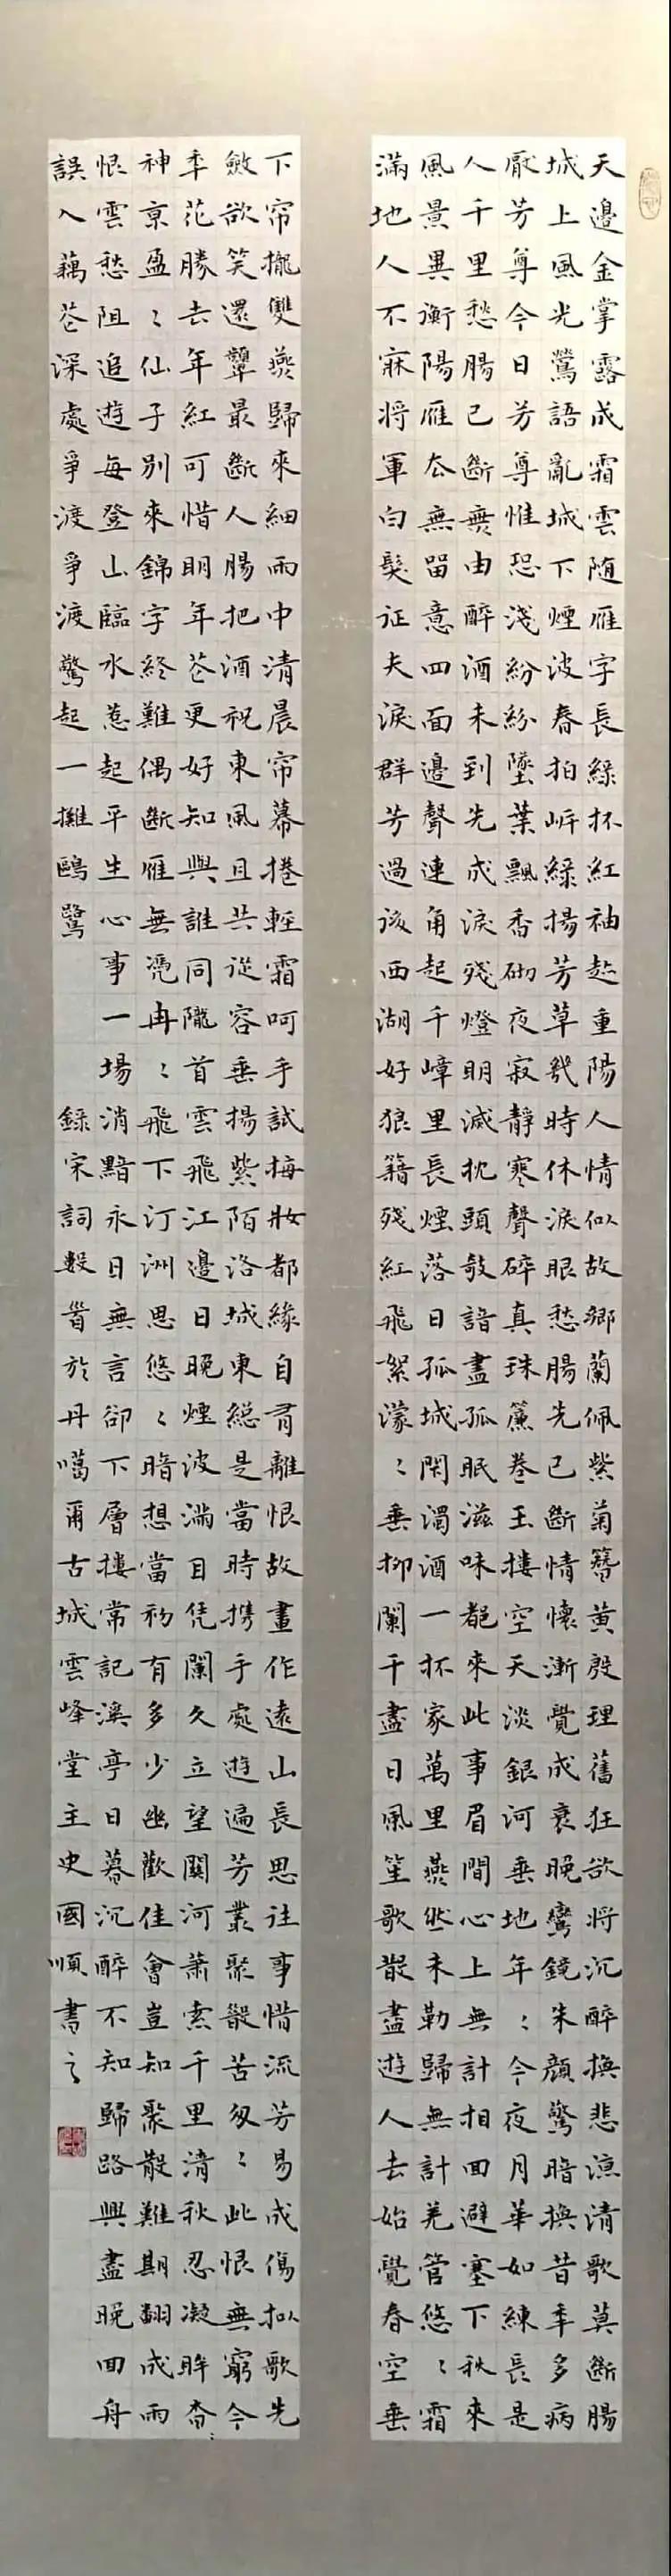 天邊金掌露成霜雲随雁字長綠杯紅袖趁重陽人情似故鄉蘭佩紫菊簪黃殷理舊狂欲將沉醉換悲涼清歌莫斷腸
城上風光鶯語亂城下煙波春拍岸綠揚芳草幾時休淚眼愁腸先已斷情懷漸覺成衰晚鸞鏡朱顏驚暗換昔年多病
厭芳尊今日芳尊惟恐淺紛紛墜葉飄香砌夜寂靜寒聲碎真珠簾卷玉樓空天淡銀河垂地年〻今夜月華如練長是
人千里愁腸已斷無由醉酒未到先成淚殘燈明滅枕頭敧諳盡孤眠滋味都來此事眉間心上無計相回避塞下秋來
風景異衡陽雁去無留意四面邊聲連角起千嶂里長煙落日孤城閉濁酒一杯家萬里燕然未勒歸無計羌管悠〻霜
滿地人不寐將軍白髮征夫淚群芳過後西湖好狼籍殘紅飛絮濛〻垂柳闌干盡日風笙歌散盡遊人去始覺春空垂
下帘攏雙燕歸來細雨中清晨帘幕捲輕霜呵手試梅妝都緣自有離恨故畫作遠山長思往事惜流芳易成傷拟歌先
斂欲笑還顰最斷人腸把酒祝東風且共從容垂揚紫陌洛城東總是當時携手處遊遍芳叢聚散苦匆〻此恨無窮今
年花勝去年紅可惜明年花更好知與誰同隴首雲飛江邊日晚煙波滿目凭闌久立望關河蕭索千里清秋忍凝眸杳〻
神京盈〻仙子別來錦字終難偶斷雁無憑冉〻飛下汀洲思悠〻暗想當初有多少幽歡佳會豈知聚散難期翻成雨
恨雲愁阻追遊每登山臨水惹起平生心事一場消黯永日無言卻下層樓常記溪亭日暮沉醉不知歸路興盡晚回舟
誤入藕花深處爭渡爭渡驚起一灘鷗鷺 錄宋詞數首於丹噶爾古城雲峰堂主史國順書之